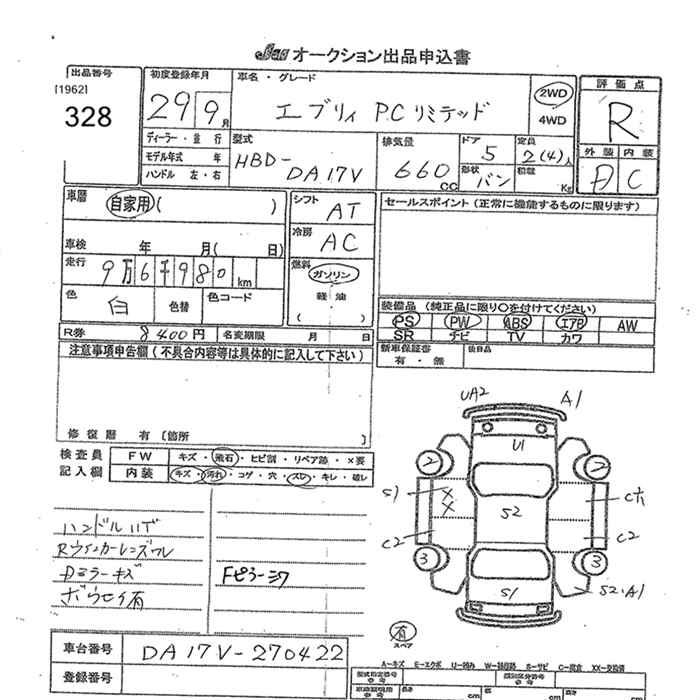 JAA オークション出品申込書
出品番号
[1962]
328
初度登録年月
29 9月
車名・グレード
エブリィ PCリミテッド
2WD
4WD
評価点
R
外装 内装
D C
ディーラー・並行
モデル年式 年
ハンドル 左・右
型式
HBD-
DA17V
排気量
660cc
ドア
5
形状
バン
定員
2(4)人
積載
Kg
車歴
自家用( )
車検 年 月( 日)
走行
9万6千980km
色
白
色替
色コード
シフト
AT
冷房
AC
燃料
ガソリン
軽油
( )
セールスポイント(正常に機能するものに限ります)
装備品(純正品に限り○を付けてください)
PS PW ABS エアB AW
SR ナビ TV カワ
新車保証書
有・無
後日品
R券 8400円 名変期限 月 日
注意事項申告欄(不具合内容等は具体的に記入して下さい)
修復歴 有〔箇所 〕
検査員
記入欄
FW キズ・飛石・ヒビ割・リペア跡・×要
内装 キズ・汚れ・コゲ・穴・スレ・キレ・破レ
ハンドルハゲ
Rウインカーレンズワレ
Dミラーキズ
ボウセイ有
Fピラーシワ
UA2 A1
U1
2 2
S1 X X S2
C2 C2
3 3
S1 S2・A1
有
スペア
車台番号 DA17V-270422
登録番号
A−キズ E−エクボ U−凹み W−補修跡 S−サビ C−腐食 XX−交換済